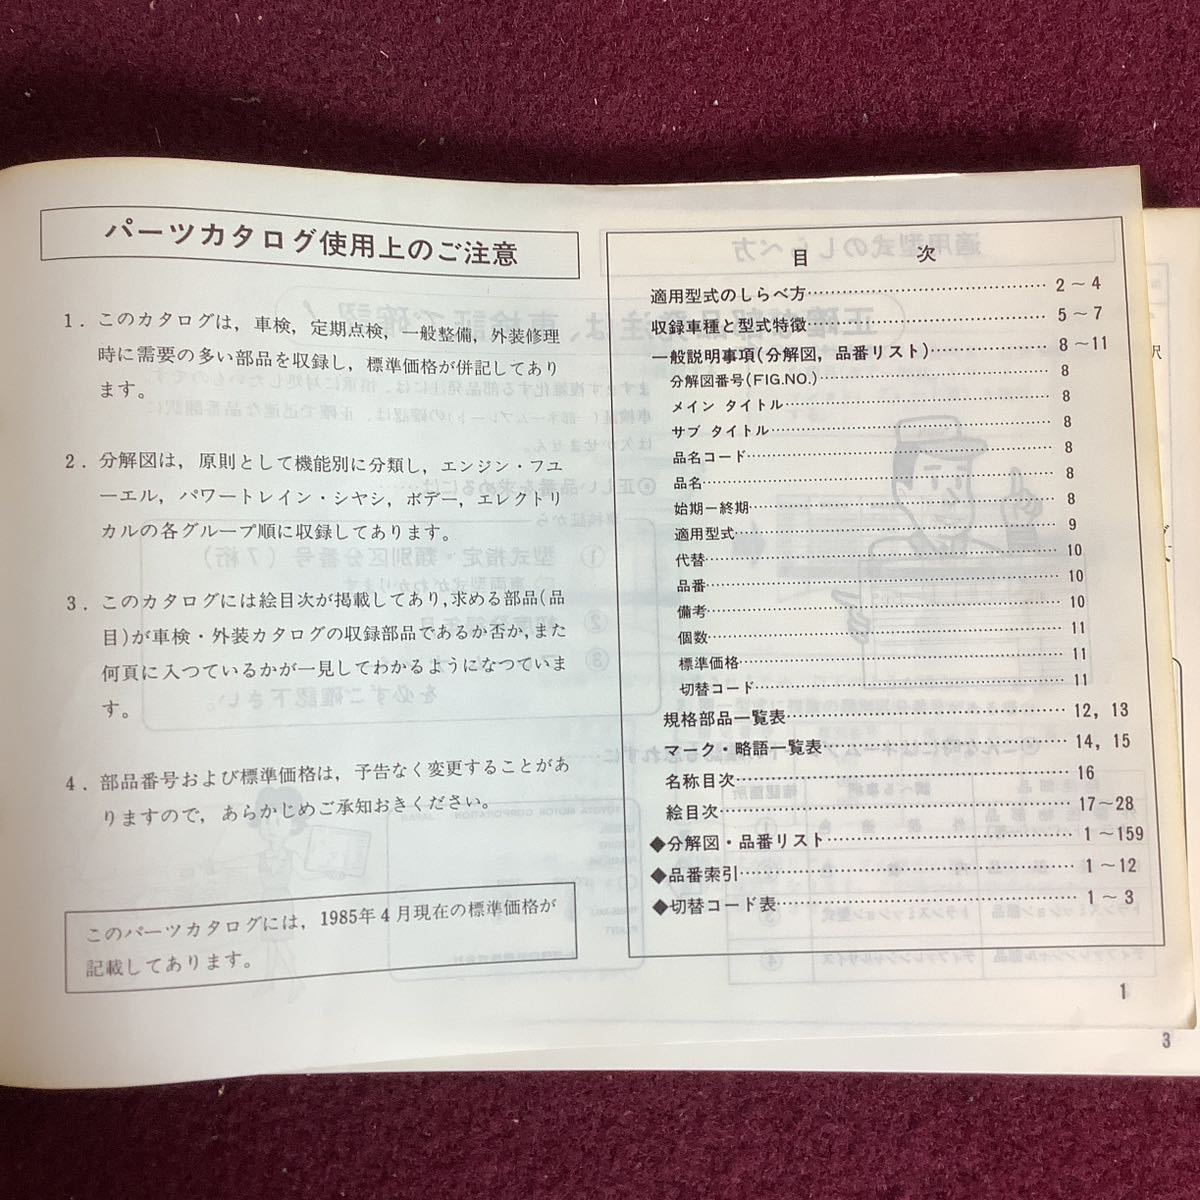 パーツカタログ使用上のご注意
1．このカタログは，車検，定期点検，一般整備，外装修理
時に需要の多い部品を収録し，標準価格が併記してあり
ます。
2．分解図は，原則として機能別に分類し，エンジン・フユ
ーエル，パワートレイン・シヤシ，ボデー，エレクトリ
カルの各グループ順に収録してあります。
3．このカタログには絵目次が掲載してあり，求める部品(品
目)が車検・外装カタログの収録部品であるか否か，また
何頁に入つているかが一見してわかるようになつていま
す。
4．部品番号および標準価格は，予告なく変更することがあ
りますので，あらかじめご承知おきください。
このパーツカタログには，1985年4月現在の標準価格が
記載してあります。
目　次
適用型式のしらべ方………2～4
収録車種と型式特徴………5～7
一般説明事項(分解図，品番リスト)………8～11
分解図番号(FIG.NO.)………8
メイン タイトル………8
サブ タイトル………8
品名コード………8
品名………8
始期－終期………8
適用型式………9
代替………10
品番………10
備考………10
個数………11
標準価格………11
切替コード………11
規格部品一覧表………12，13
マーク・略語一覧表………14，15
名称目次………16
絵目次………17～28
◆分解図・品番リスト………1～159
◆品番索引………1～12
◆切替コード表………1～3
1
3
択